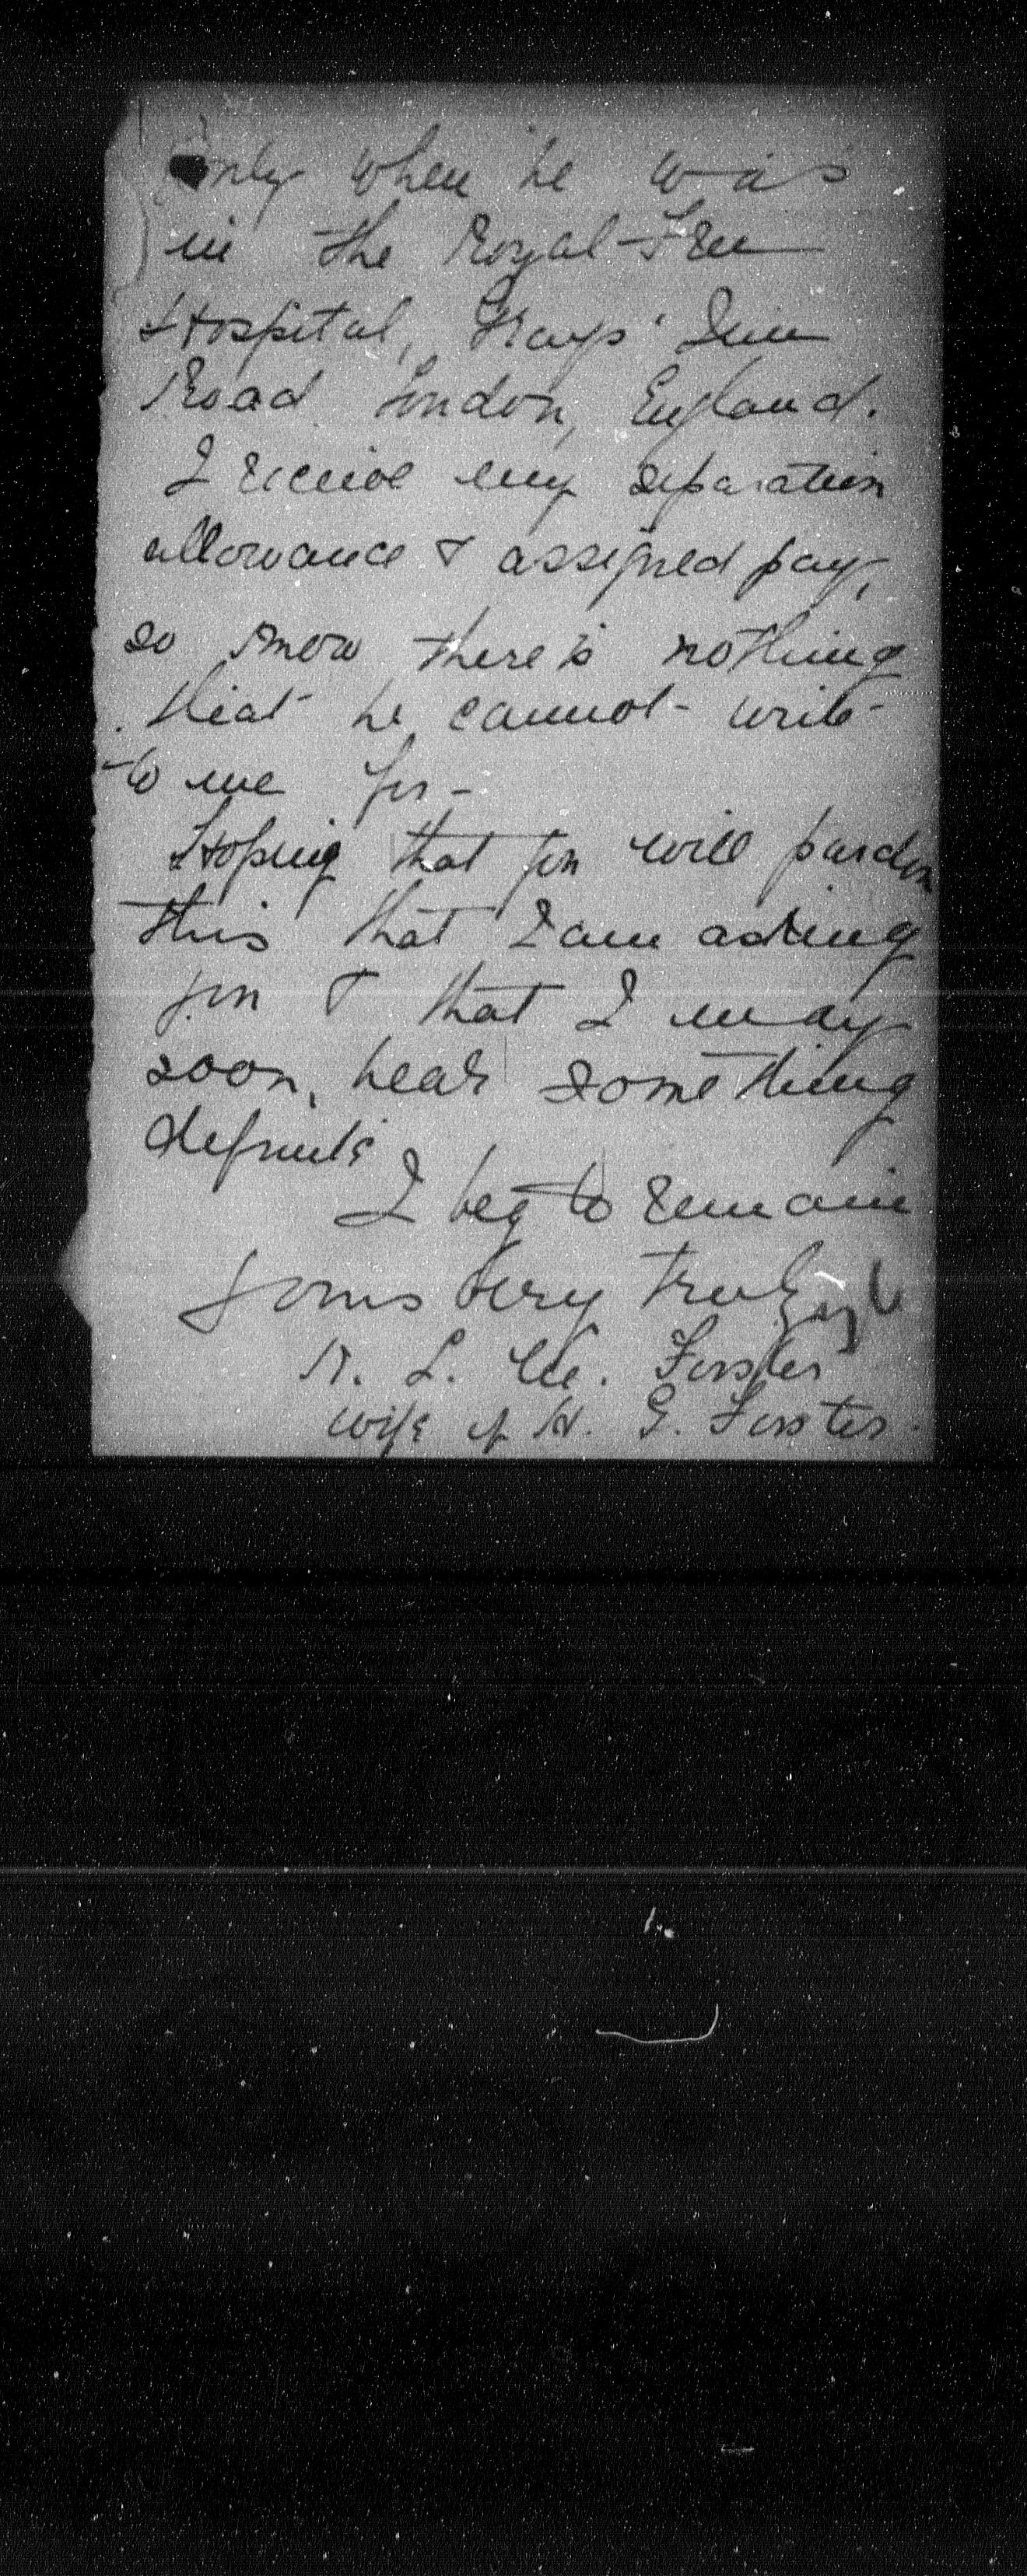 only when he was
in the Royal Free
Hospital, Grays' Inn
Road London, England.
I receive my separation
allowance & assigned pay,
so know there is nothing
that he cannot write
to me for -
Hoping that you will pardon
this that I am asking
you & that I may
soon, hear something
definite
I beg to remain
Yours very truly
L. M. Forster
wife of H. G. Forster.